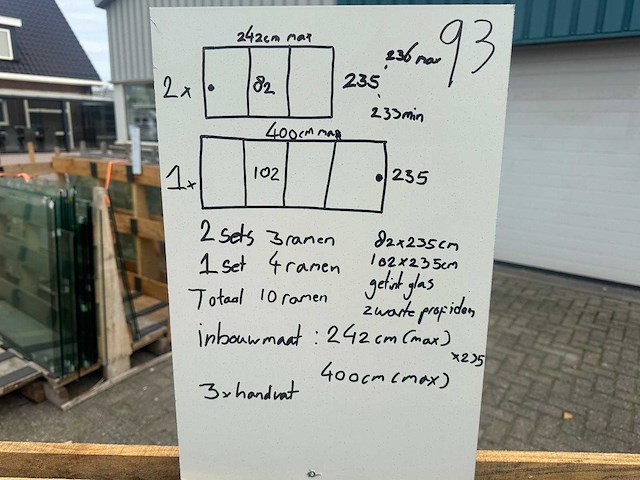 93
242cm max
2x
82
235
236 max
233min
400cm max
1x
102
235
2 sets 3 ramen 82x235cm
1 set 4 ramen 102x235cm
Totaal 10 ramen getint glas
zwarte profielen
inbouwmaat : 242 cm (max)
x235
400cm (max)
3x handvat